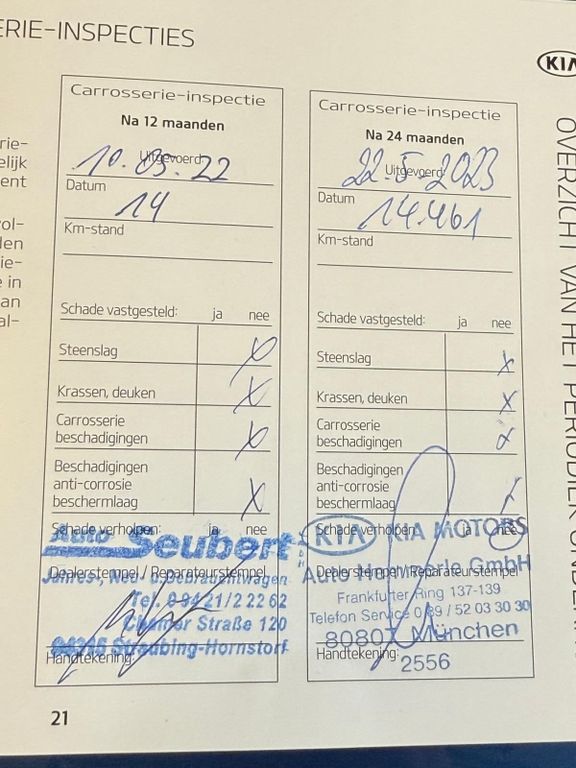 ERIE-INSPECTIES
KIA
Carrosserie-inspectie
Na 12 maanden
Uitgevoerd:
10.05.22
Datum
14
Km-stand
Schade vastgesteld: ja nee
Steenslag X
Krassen, deuken X
Carrosserie
beschadigingen X
Beschadigingen
anti-corrosie
beschermlaag X
Schade verholpen: ja nee
Auto Seubert
Dealerstempel / Reparateurstempel
Jahres-, Neu- u. Gebrauchtwagen
Tel. 0 94 21 / 2 22 62
Chamer Straße 120
94315 Straubing-Hornstorf
Handtekening:
Carrosserie-inspectie
Na 24 maanden
Uitgevoerd:
22.5.2023
Datum
14.461
Km-stand
Schade vastgesteld: ja nee
Steenslag X
Krassen, deuken X
Carrosserie
beschadigingen X
Beschadigingen
anti-corrosie
beschermlaag X
Schade verholpen: ja nee
KIA KIA MOTORS
Dealerstempel / Reparateurstempel
Auto GmbH
Frankfurter Ring 137-139
Telefon Service 0 89 / 52 03 30 30
80807 München
Handtekening:
2556
OVERZICHT VAN HET PERIODIEK ONDER
rie-
elijk
ent
vol-
den
ie-
e in
an
al-
21